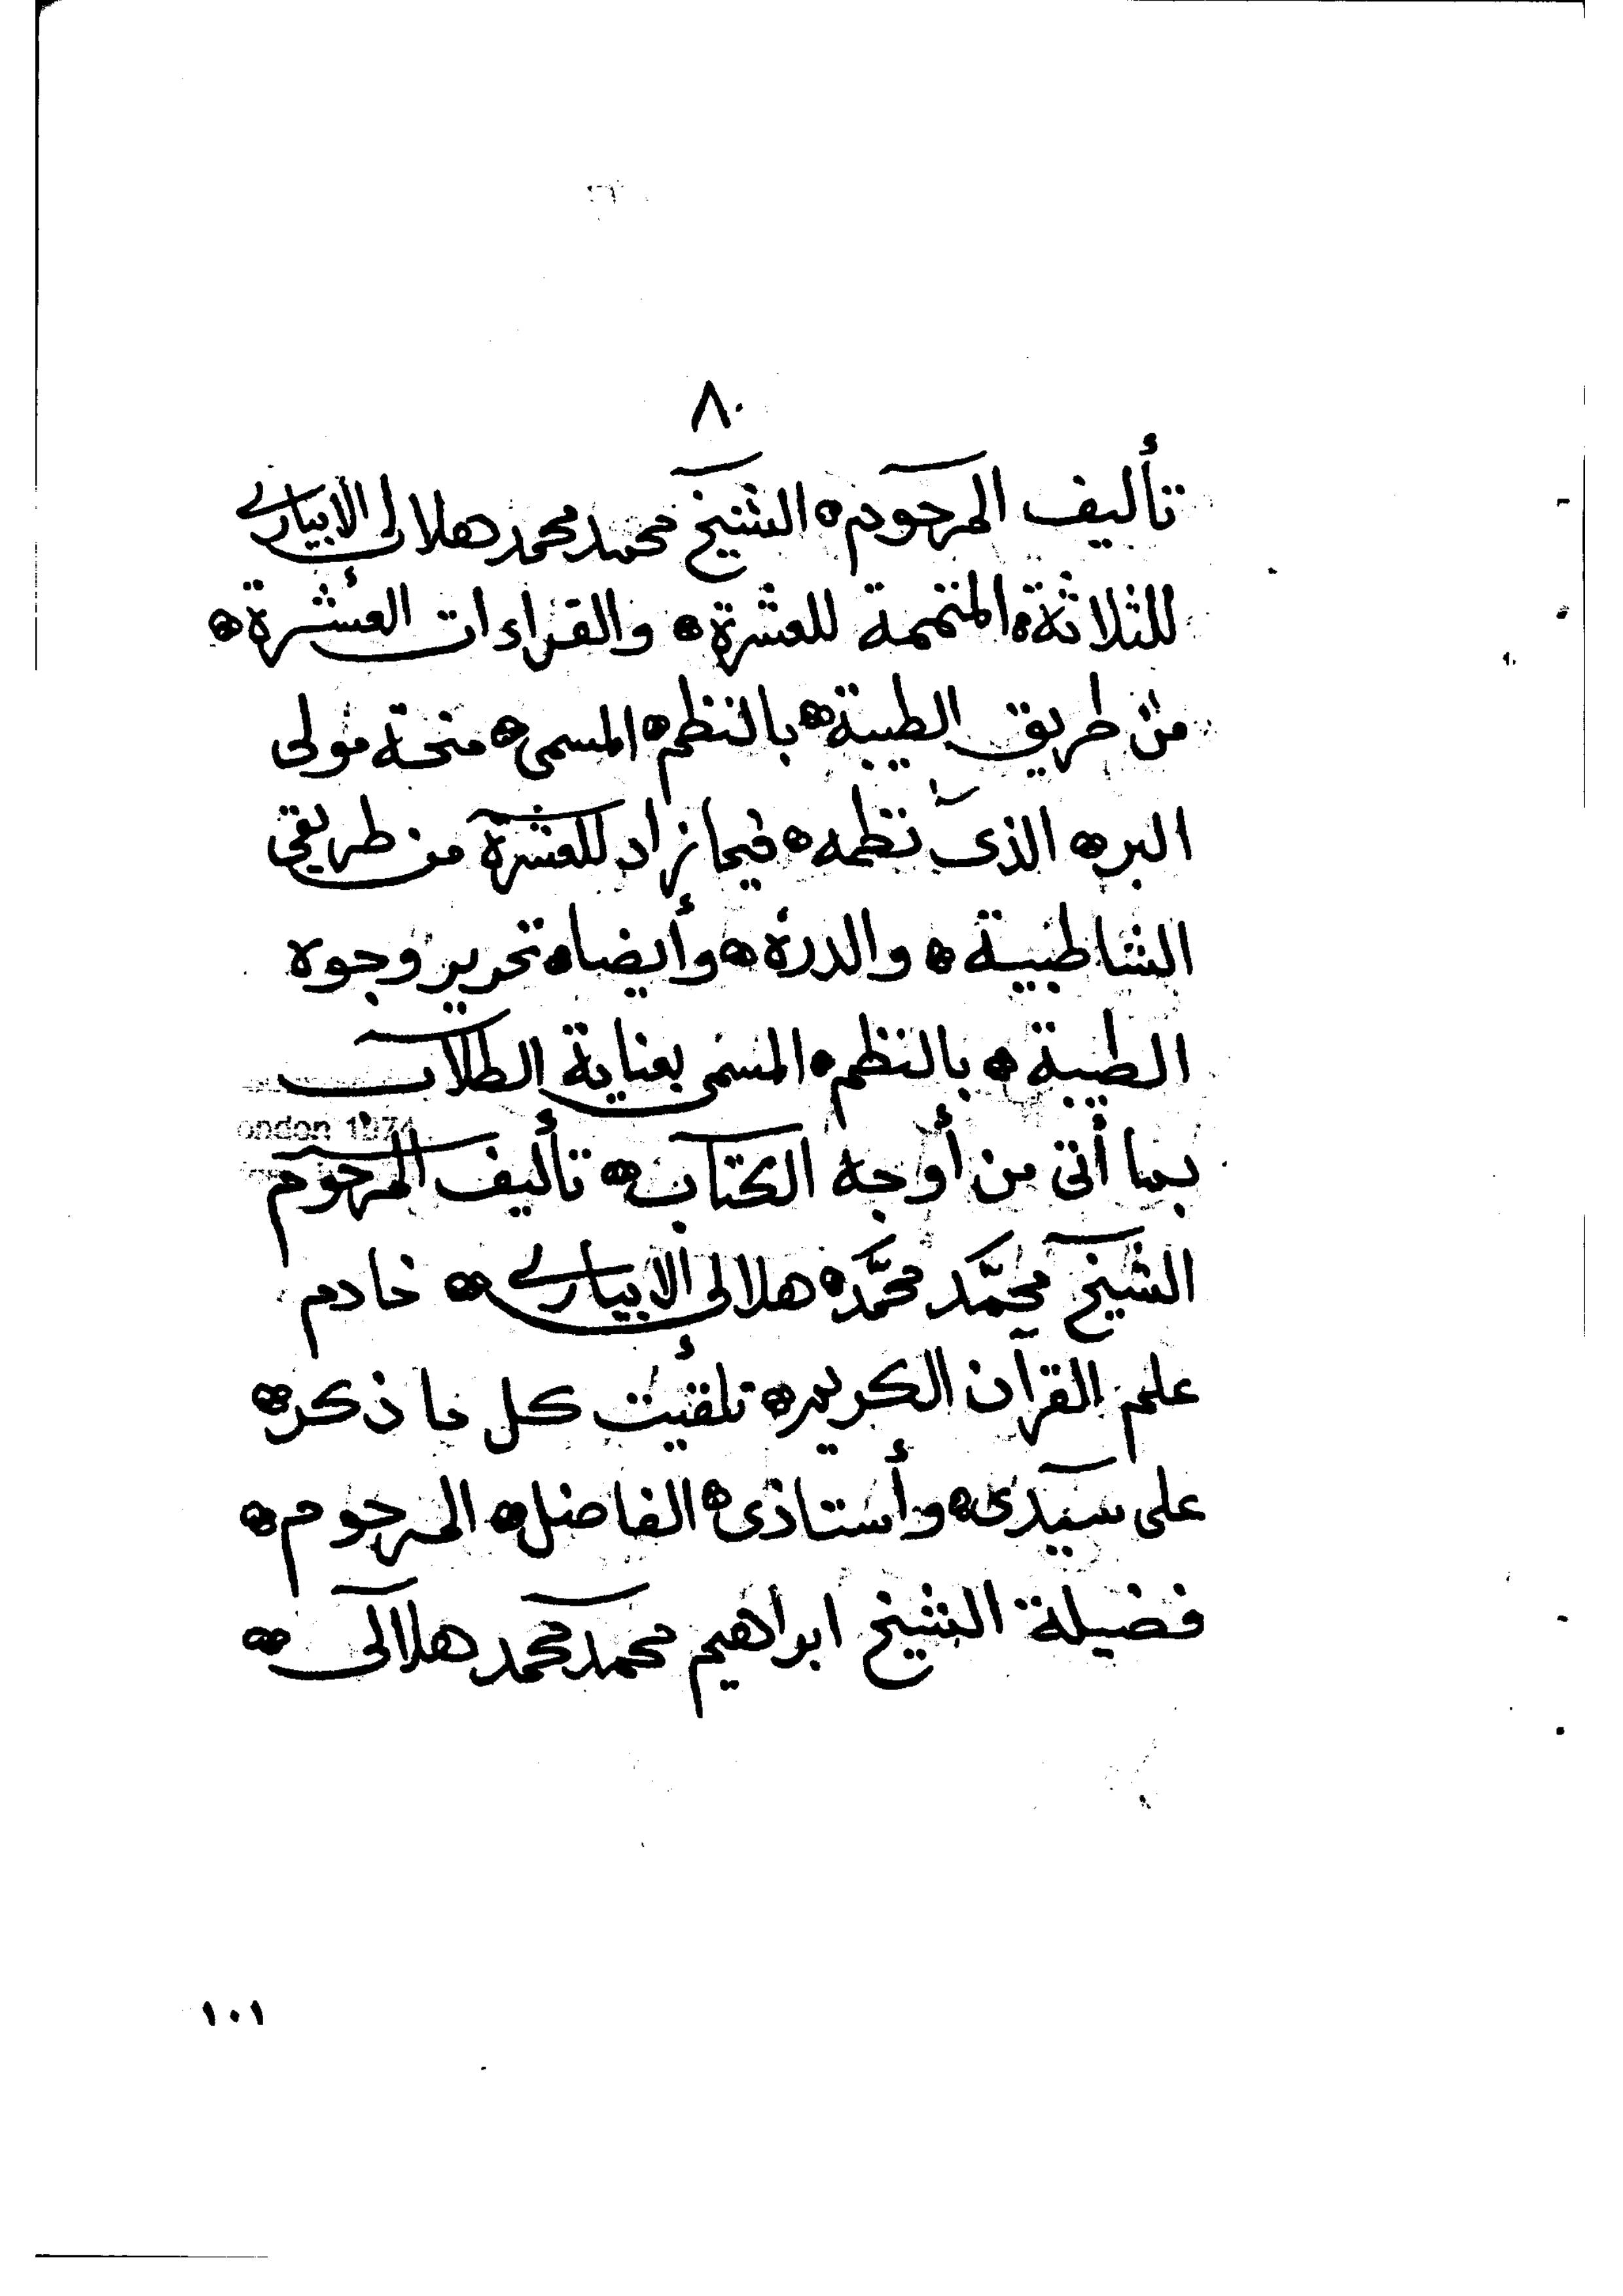 ٨٠
تأليف المرحوم ه الشيخ محمد محمد هلالى الابيارى
للثلاثة ه المتممة للعشرة ه والقراءات العشرة ه
من طريق الطيبة ه بالنظم ه المسمى ه منحة مولى
البر ه الذى نظمه ه فيما زاد للعشرة من طريقى
الشاطبية ه والدرة ه وأيضا ه تحرير وجوه
الطيبة ه بالنظم ه المسمى بعناية الطلاب
بما أتى من أوجه الكتاب ه تأليف المرحوم
الشيخ محمَّد محمَّد ه هلالى الابيارى ه خادم
علم القرآن الكريم ه تلقيت كل ما ذكر ه
على سيدى ه وأستاذى ه الفاضل ه المرحوم ه
فضيلة الشيخ ابراهيم محمد محمد هلالى ه
ondon 1974
١٠١